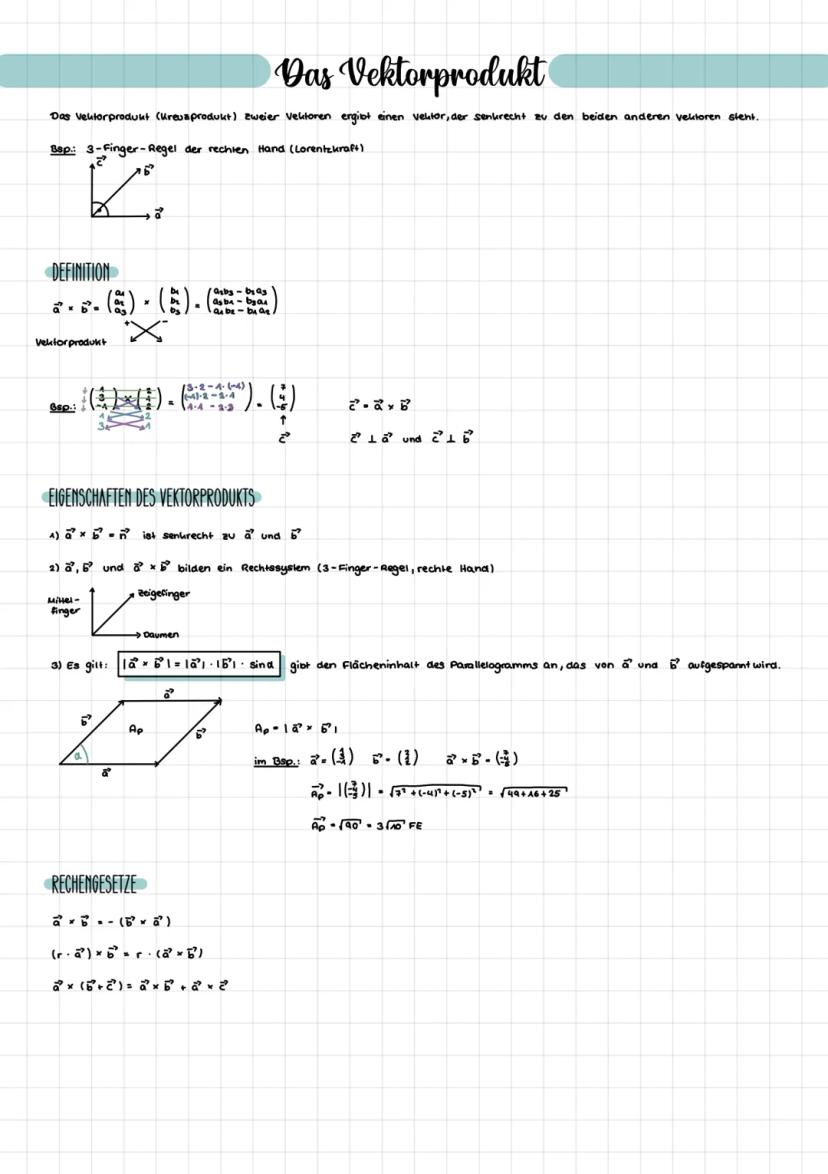 Das Vektorprodukt
Das Vektorprodukt (Kreuzprodukt) zweier Vektoren ergibt einen Vektor, der senkrecht zu den beiden anderen Vektoren steht.
Bsp.: 3-Finger-Regel der rechten Hand (Lorentzkraft)
c⃗ b⃗
a⃗
DEFINITION
a⃗ × b⃗ = (a₁ a₂ a₃) × (b₁ b₂ b₃) = (a₂b₃ - b₂a₃ a₃b₁ - b₃a₁ a₁b₂ - b₁a₂)
+ -
Vektorprodukt
Bsp.: (1 3 -1) × (2 1 2) = (3·2 - 1·(-1) (-1)·2 - 2·1 1·1 - 2·3) = (7 4 -5) c⃗ = a⃗ × b⃗
1 2
3 1
c⃗ c⃗ ⊥ a⃗ und c⃗ ⊥ b⃗
EIGENSCHAFTEN DES VEKTORPRODUKTS
1) a⃗ × b⃗ = n⃗ ist senkrecht zu a⃗ und b⃗
2) a⃗, b⃗ und a⃗ × b⃗ bilden ein Rechtssystem (3-Finger-Regel, rechte Hand)
Mittel-finger Zeigefinger
Daumen
3) Es gilt: |a⃗ × b⃗| = |a⃗| · |b⃗| · sin α gibt den Flächeninhalt des Parallelogramms an, das von a⃗ und b⃗ aufgespannt wird.
a⃗
b⃗ Ap b⃗
α
a⃗
Ap = |a⃗ × b⃗|
im Bsp.: a⃗ = b⃗ = a⃗ × b⃗ = (7 -4 -5)
Ap⃗ = |(7 -4 -5)| = √7² + (-4)² + (-5)² = √49+16+25
Ap⃗ = √90 = 3√10 FE
RECHENGESETZE
a⃗ × b⃗ = - (b⃗ × a⃗)
(r · a⃗) × b⃗ = r · (a⃗ × b⃗)
a⃗ × (b⃗ + c⃗) = a⃗ × b⃗ + a⃗ × c⃗